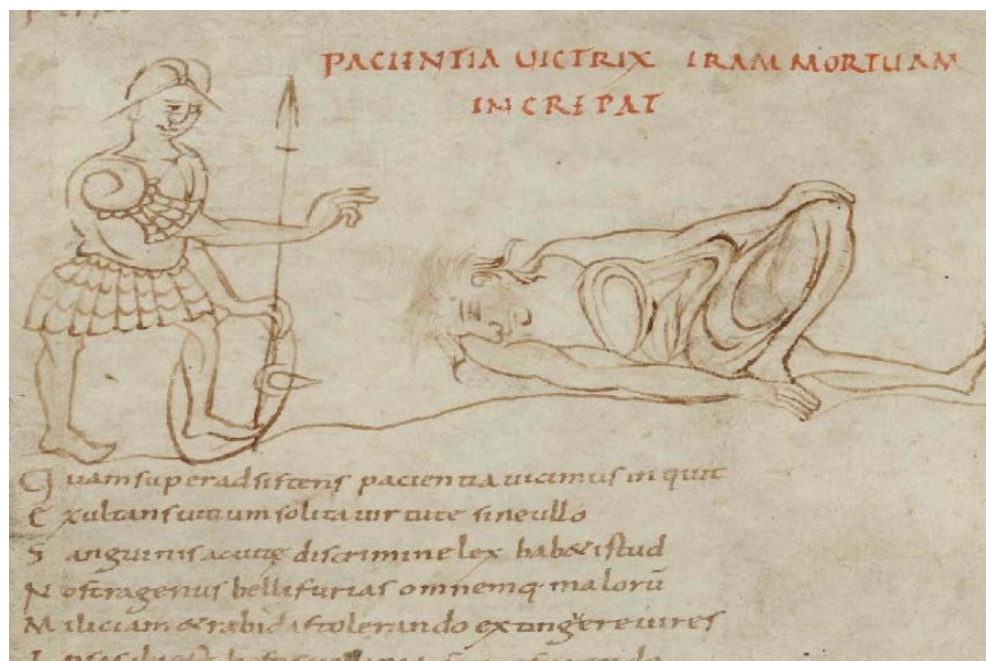 PACIENTIA UICTRIX IRAM MORTUAM
INCREPAT
Q uam super adsistens pacientia uicimus inquit
E xultans uitium solita uirtute sine ullo
S anguinis acuitę discrimine lex hab& istud
N ostra genus belli furias omnemq· malorū
M iliciam & rabidas tolerando extingere uires